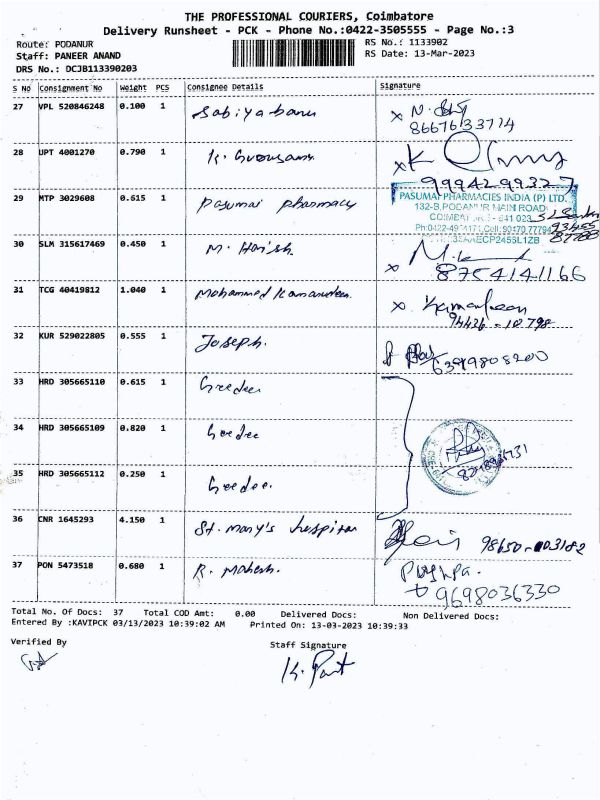 THE PROFESSIONAL COURIERS, Coimbatore
Delivery Runsheet - PCK - Phone No.:0422-3505555 - Page No.:3
Route: PODANUR
RS No.: 1133902
Staff: PANEER ANAND
RS Date: 13-Mar-2023
DRS No.: DCJB113390203
S No Consignment No Weight PCS Consignee Details Signature
27 VPL 520846248 0.100 1 Sabiyabanu
8667633774
28 UPT 4001270 0.790 1 K.
9994299327
29 MTP 3029608 0.615 1 Pasumai Pharmacy
PASUMAI PHARMACIES INDIA (P) LTD.
132-B, PODANUR MAIN ROAD
30 SLM 315617469 0.450 1 M. Harish.
8754141166
31 TCG 40419812 1.040 1 Mohammed Kamarudeen.
94426-10798
32 KUR 529022805 0.555 1 Joseph.
33 HRD 305665110 0.615 1 Greedee
34 HRD 305665109 0.820 1 Geedee
35 HRD 305665112 0.250 1 Geedee.
36 CNR 1645293 4.150 1 St. Mary's hospital
98650-003182
37 PON 5473518 0.680 1 R. Mahesh.
Pushpa.
9698036330
Total No. Of Docs: 37 Total COD Amt: 0.00 Delivered Docs: Non Delivered Docs:
Entered By :KAVIPCK 03/13/2023 10:39:02 AM Printed On: 13-03-2023 10:39:33
Verified By
Staff Signature